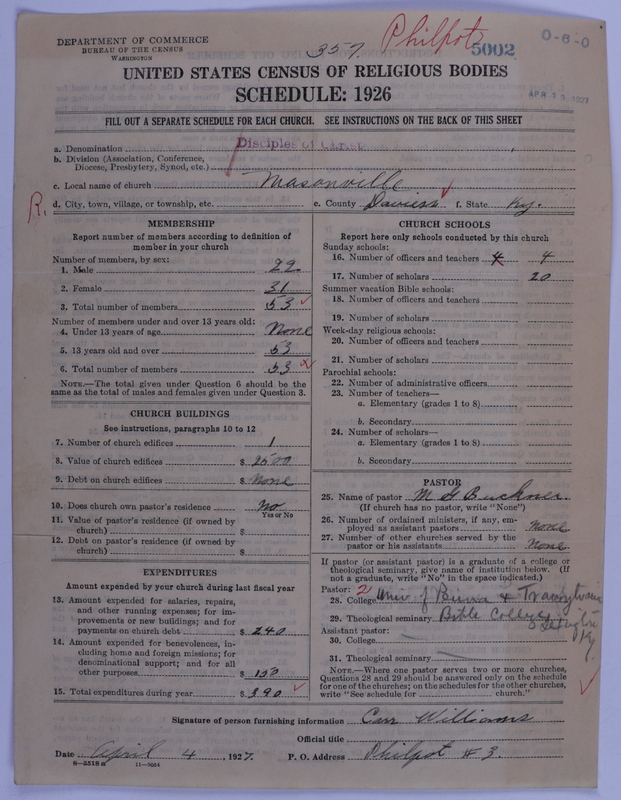 DEPARTMENT OF COMMERCE
BUREAU OF THE CENSUS
WASHINGTON
357.
Philpot
5002
0-6-0
APR 1 1927
UNITED STATES CENSUS OF RELIGIOUS BODIES
SCHEDULE: 1926
FILL OUT A SEPARATE SCHEDULE FOR EACH CHURCH. SEE INSTRUCTIONS ON THE BACK OF THIS SHEET
a. Denomination Disciples of Christ
b. Division (Association, Conference,
Diocese, Presbytery, Synod, etc.)
c. Local name of church Masonville
R. d. City, town, village, or township, etc. e. County Daviess f. State Ky.
MEMBERSHIP
Report number of members according to definition of
member in your church
Number of members, by sex:
1. Male 22
2. Female 31
3. Total number of members 53
Number of members under and over 13 years old:
4. Under 13 years of age None
5. 13 years old and over 53
6. Total number of members 53
NOTE.—The total given under Question 6 should be the
same as the total of males and females given under Question 3.
CHURCH BUILDINGS
See instructions, paragraphs 10 to 12
7. Number of church edifices 1
8. Value of church edifices $ 2500
9. Debt on church edifices $ None
10. Does church own pastor's residence No
Yes or No
11. Value of pastor's residence (if owned by
church) $
12. Debt on pastor's residence (if owned by
church) $
EXPENDITURES
Amount expended by your church during last fiscal year
13. Amount expended for salaries, repairs,
and other running expenses; for im-
provements or new buildings; and for
payments on church debt $ 240
14. Amount expended for benevolences, in-
cluding home and foreign missions; for
denominational support; and for all
other purposes $ 150
15. Total expenditures during year $ 390
CHURCH SCHOOLS
Report here only schools conducted by this church
Sunday schools:
16. Number of officers and teachers 4 4
17. Number of scholars 20
Summer vacation Bible schools:
18. Number of officers and teachers
19. Number of scholars
Week-day religious schools:
20. Number of officers and teachers
21. Number of scholars
Parochial schools:
22. Number of administrative officers
23. Number of teachers—
a. Elementary (grades 1 to 8)
b. Secondary
24. Number of scholars—
a. Elementary (grades 1 to 8)
b. Secondary
PASTOR
25. Name of pastor M G Buckner.
(If church has no pastor, write "None")
26. Number of ordained ministers, if any, em-
ployed as assistant pastors none
27. Number of other churches served by the
pastor or his assistants None
If pastor (or assistant pastor) is a graduate of a college or
theological seminary, give name of institution below. (If
not a graduate, write "No" in the space indicated.)
Pastor: 2
28. College Univ of & Transylvania
29. Theological seminary Bible College Lexington
Ky.
Assistant pastor:
30. College
31. Theological seminary
NOTE.—Where one pastor serves two or more churches,
Questions 28 and 29 should be answered only on the schedule
for one of the churches; on the schedules for the other churches,
write "See schedule for church."
Signature of person furnishing information Carr Williams
Official title
Date April 4, 1927. P. O. Address Philpot # 3.
8—2518 a 11—9034